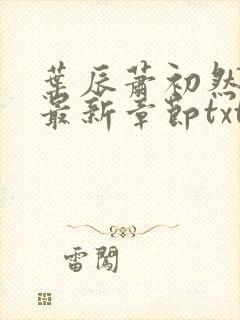 葉辰蕭初然
最新章節txt
雷闖